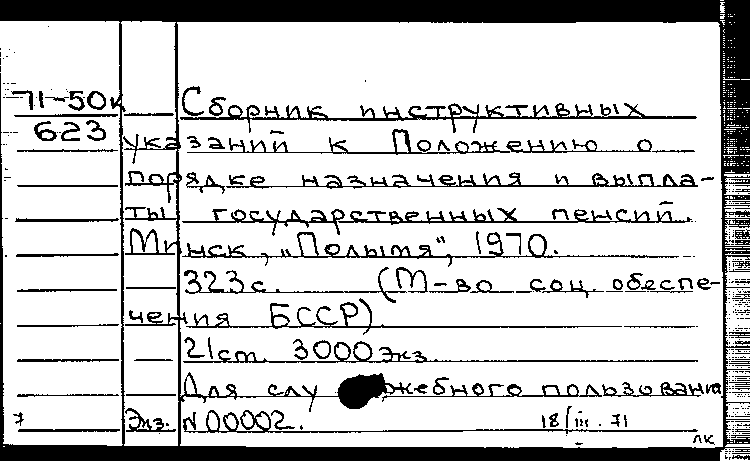 71-50к Сборник инструктивных
623 указаний к Положению о
порядке назначения и выпла-
ты государственных пенсий.
Минск, „Полымя", 1970.
323с. (М-во соц. обеспе-
чения БССР).
21 см. 3000 экз.
Для служебного пользования
7 Экз. N00002. 18/III. 71
лк